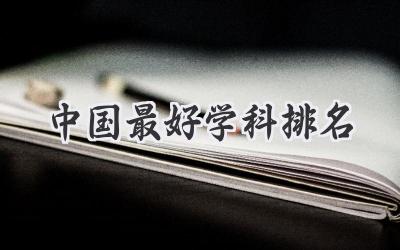 中国最好学科排名